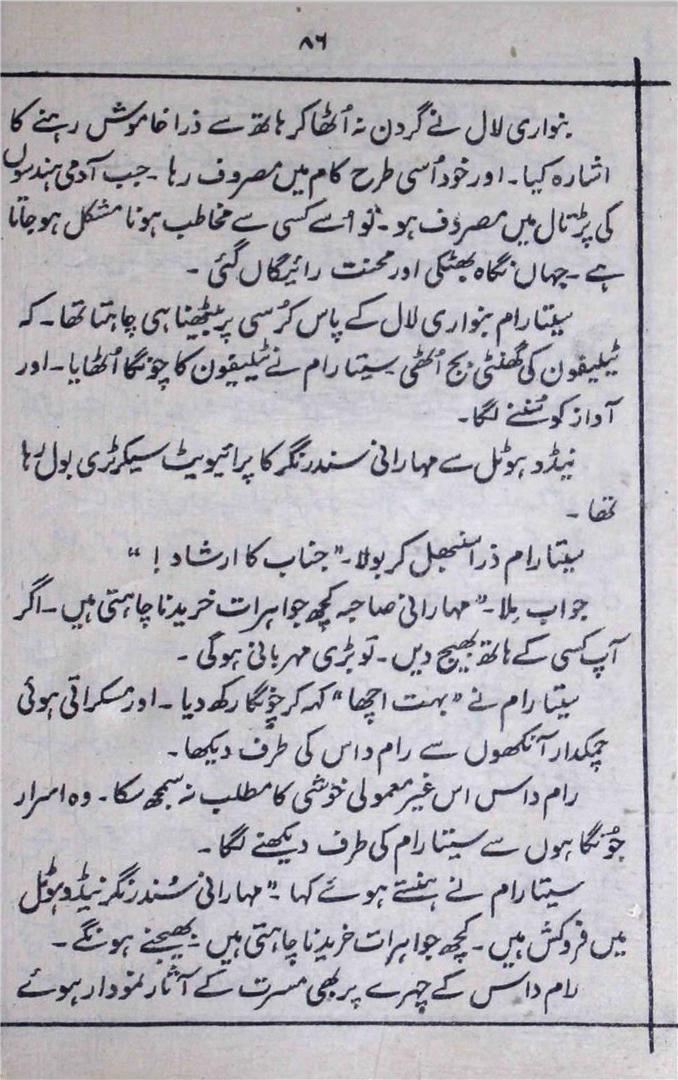 ۸۶
بنواری لال نے گردن نہ اُٹھا کر ہاتھ سے ذرا خاموش رہنے کا
اشارہ کیا۔ اور خود اُسی طرح کام میں مصروف رہا۔ جب آدمی ہندسوں
کی پڑتال میں مصروف ہو۔ تو اُسے کسی سے مخاطب ہونا مشکل ہو جاتا
ہے۔ جہاں نگاہ بھٹکی اور محنت رائیگاں گئی۔
سیتا رام بنواری لال کے پاس کرُسی پر بیٹھینا ہی چاہتا تھا۔ کہ
ٹیلیفون کی گھنٹی بج اُٹھی۔ سیتا رام نے ٹیلیفون کا چونگا اُٹھایا۔ اور
آواز کو سُننے لگا۔
نیڈو ہوٹل سے مہارانی سندر نگر کا پرائیویٹ سیکرٹری بول رہا
تھا۔
سیتا رام ذرا سنبھل کر بولا۔ ”جناب کا ارشاد! “
جواب مِلا۔ ”مہارانی صاحبہ کچھ جواہرات خریدنا چاہتی ہیں۔ اگر
آپ کسی کے ہاتھ بھیج دیں۔ تو بڑی مہربانی ہوگی۔
سیتا رام نے ”بہت اچھا“ کہہ کر چونگا رکھ دیا۔ اور مسکراتی ہوئی
چمکدار آنکھوں سے رام داس کی طرف دیکھا۔
رام داس اس غیر معمولی خوشی کا مطلب نہ سمجھ سکا۔ وہ اسرار
جُو نگاہوں سے سیتا رام کی طرف دیکھنے لگا۔
سیتا رام نے ہنستے ہوئے کہا۔ ”مہارانی سُندر نگر نیڈو ہوٹل
میں فروکش ہیں۔ کچھ جواہرات خریدنا چاہتی ہیں۔ بھیجنے ہونگے۔
رام داس کے چہرے پر بھی مسرت کے آثار نمودار ہوئے